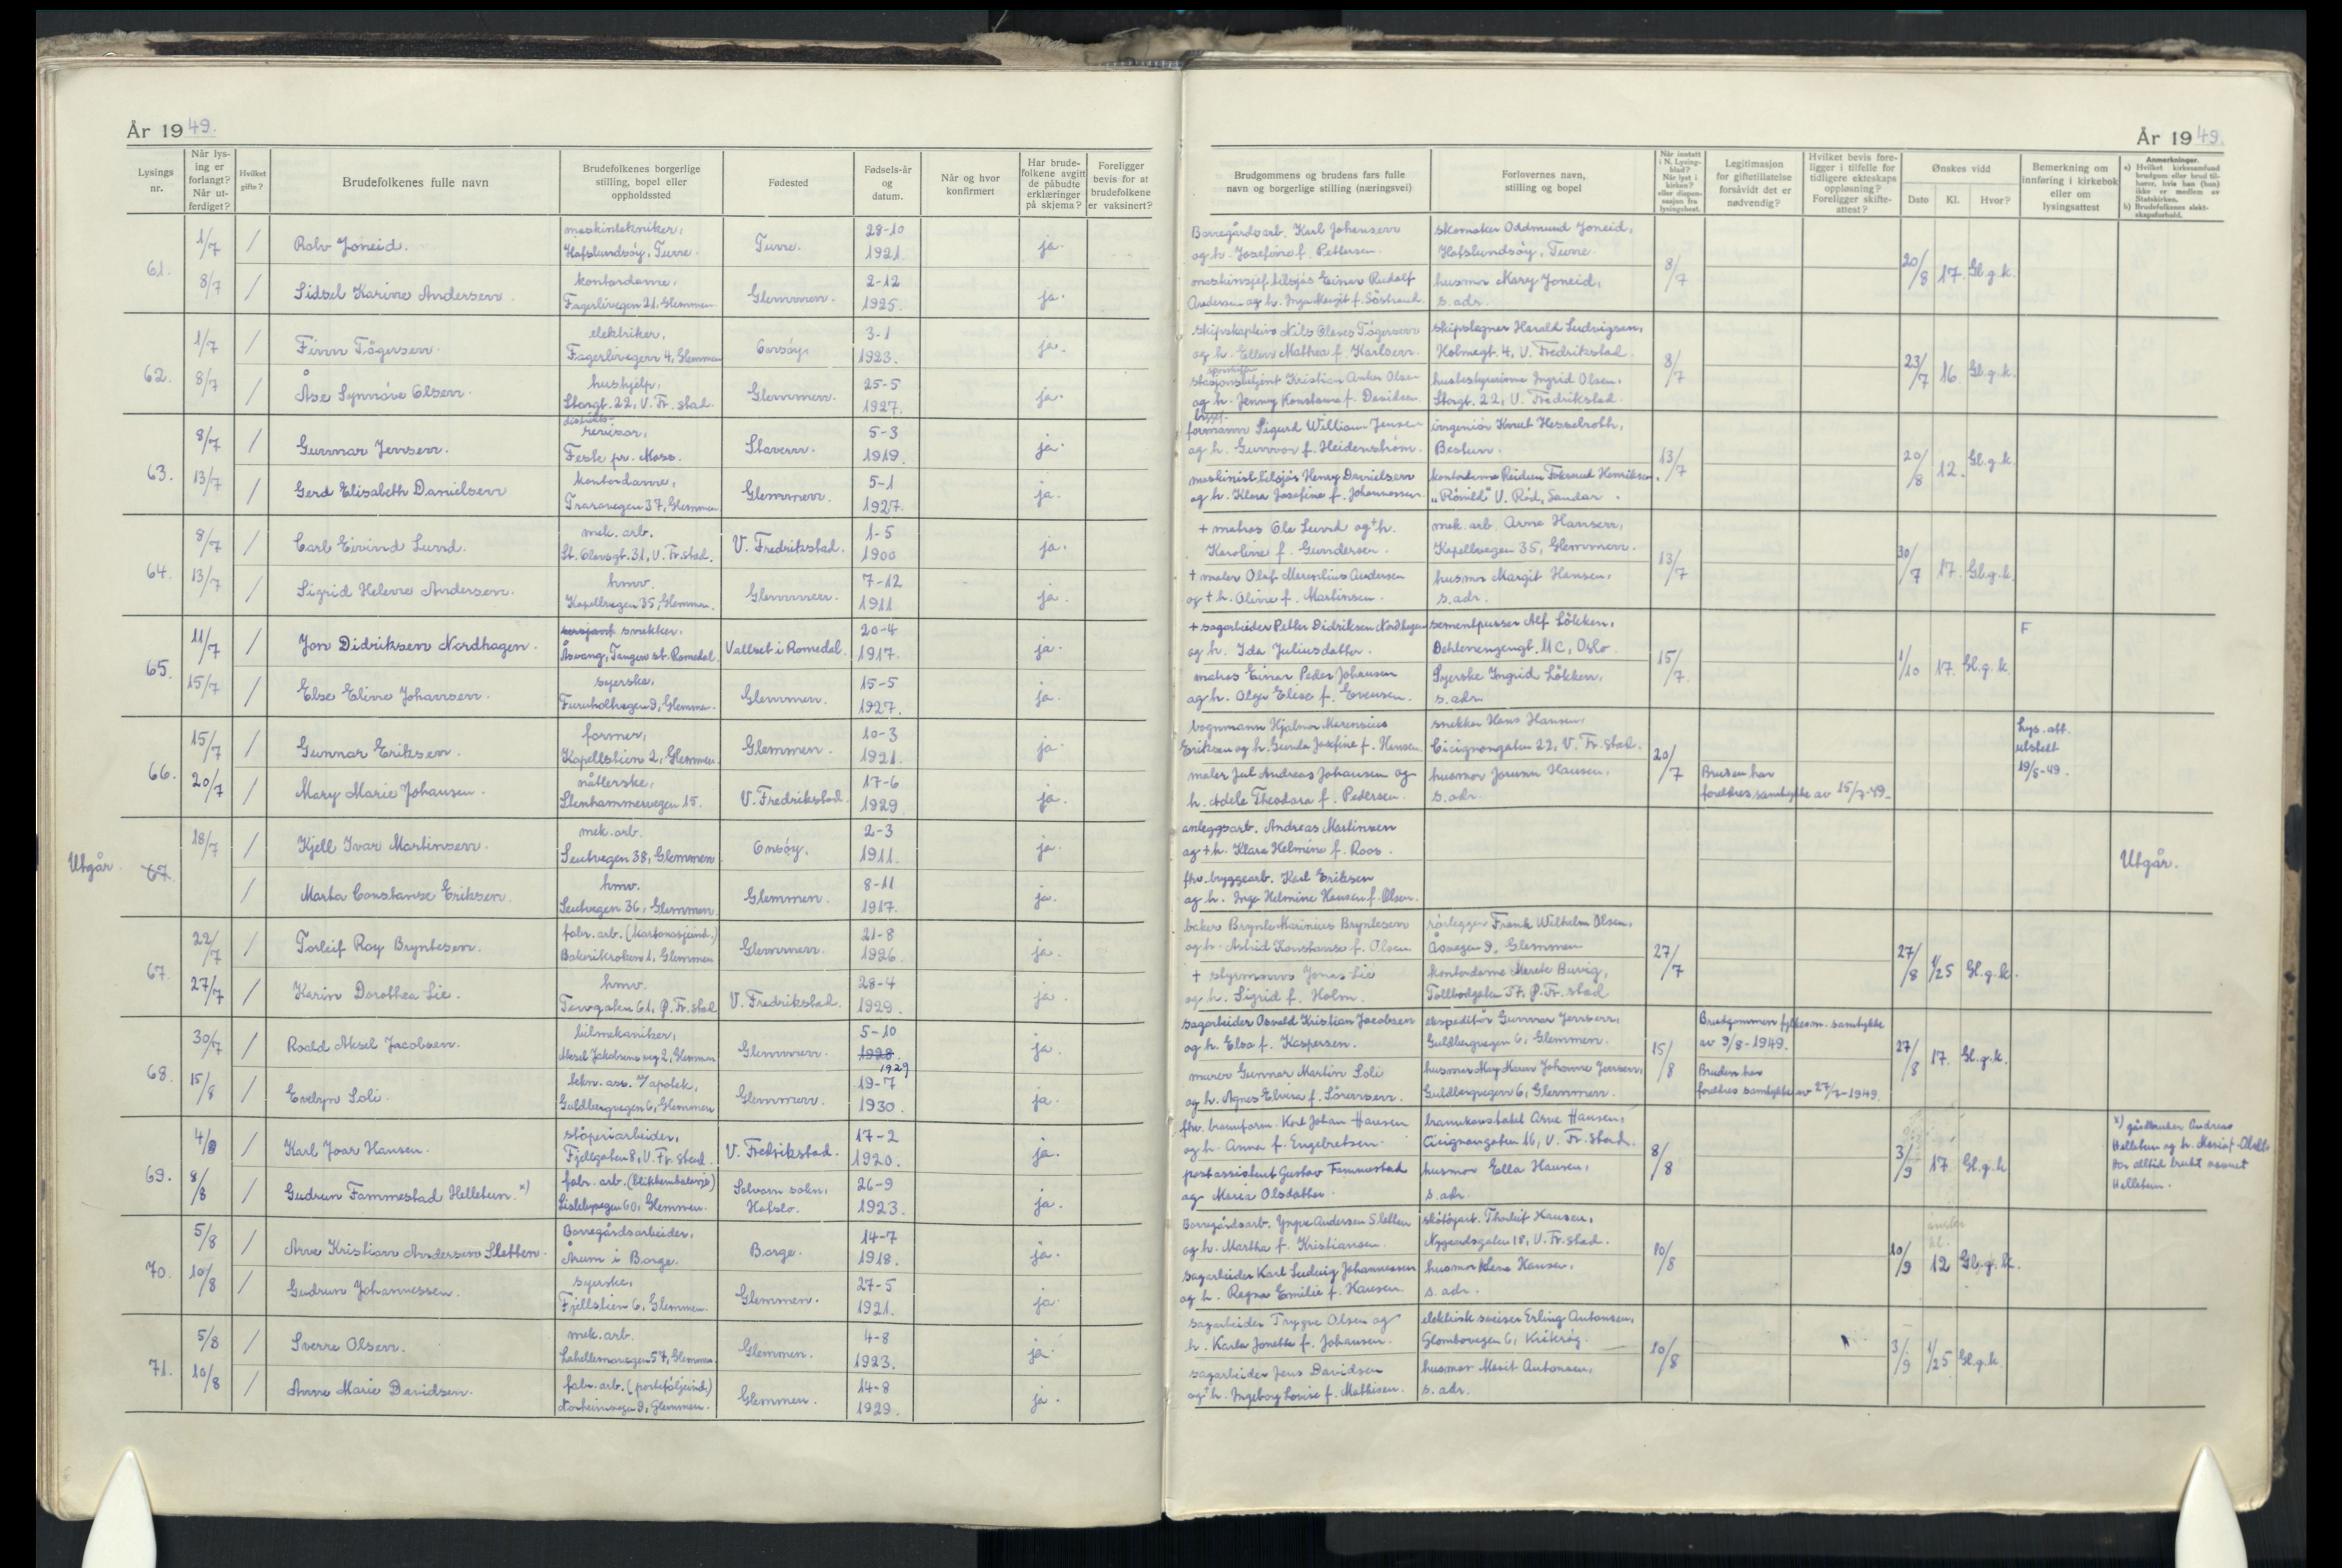 År 1949.
Lysings nr.
Når lysing er forlangt? Når utferdiget?
Hvilket gifte?
Brudefolkenes fulle navn
Brudefolkenes borgerlige stilling, bopel eller oppholdssted
Fødested
Fødsels-år og datum.
Når og hvor konfirmert
Har brudefolkene avgitt de påbudte erklæringer på skjema?
Foreligger bevis for at brudefolkene er vaksinert?
61. 1/7 / Rolv Joneid. maskintekniker, Hafslundsöy, Tune. Tune. 28-10 1921. ja.
8/7 / Sidsel Karine Andersen. kontordame, Fagerlivegen 21, Glemmen. Glemmen. 2-12 1925. ja.
62. 1/7 / Finn Tögersen. elektriker, Fagerlivegen 4, Glemmen Onsøy. 3-1 1923. ja.
8/7 / Åse Synnöve Olsen. hushjelp, Storgt. 22, V. Fr.stad. Glemmen. 25-5 1927. ja.
63. 8/7 / Gunnar Jensen. distrikts- revisor, pr. Moss. Stavern. 5-3 1919. ja.
13/7 / Gerd Elisabeth Danielsen kontordame, Traravegen 37, Glemmen Glemmen. 5-1 1927. ja.
64. 8/7 / Carl Eivind Lund. mek. arb. St. Olavsgt. 31, V. Fr.stad. V. Fredrikstad. 1-5 1900 ja.
13/7 / Sigrid Helene Andersen. hmv. Kapellvegen 35, Glemmen. Glemmen. 7-12 1911 ja.
65. 11/7 / Jon Didriksen Nordhagen. snekker. Åsvang, Tangen st. Romedal. Vallset i Romedal. 20-4 1917. ja.
15/7 / Else Eline Johansen. syerske, Furuholtvegen 9, Glemmen. Glemmen. 15-5 1927. ja.
66. 15/7 / Gunnar Eriksen. former, Kapellstien 2, Glemmen. Glemmen. 10-3 1921. ja.
20/7 / Mary Marie Johansen. nåtlerske, Stenhammervegen 15. V. Fredrikstad. 17-6 1929. ja.
Utgår. 67. 18/7 / Kjell Ivar Martinsen. mek. arb. Seutvegen 38, Glemmen. Onsøy. 2-3 1911. ja.
/ Marta Constanse Eriksen. hmv. Seutvegen 36, Glemmen. Glemmen. 8-11 1917. ja.
67. 22/7 / Torleif Roy Bryntesen. fabr. arb. (kartonasjeind.) Bakerikroken 1, Glemmen Glemmen. 21-8 1926. ja.
27/7 / Karin Dorothea Lie. hmv. 61, Ø. Fr.stad V. Fredrikstad. 28-4 1929. ja.
68. 30/7 / Roald Aksel Jacobsen. bilmekaniker, Aksel Jakobsens veg 2, Glemmen Glemmen. 5-10 1928. 1929 ja.
15/8 / Evelyn Soli. tekn. ass. v/apotek, Guldbergvegen 6, Glemmen Glemmen. 19-7 1930. ja.
69. 4/8 / Karl Joar Hansen. stöperiarbeider, Fjellgaten 8, V. Fr.stad. V. Fredrikstad. 17-2 1920. ja.
8/8 / Gudrun Fammestad Helletun. x) fabr. arb. Lislebyvegen 60, Glemmen. Solvorn sokn, Hafslo. 26-9 1923. ja.
70. 5/8 / Arne Kristian Andersen Sletten. Borregårdsarbeider, Årum i Borge. Borge. 14-7 1918. ja.
10/8 / Gudrun Johannessen. syerske, Fjellstien 6, Glemmen. Glemmen. 27-5 1921. ja.
71. 5/8 / Sverre Olsen. mek. arb. Lahellemovegen 57, Glemmen Glemmen. 4-8 1923. ja.
10/8 / Anne Marie Davidsen. fabr. arb. (porteföljeind.) Norheimvegen 9, Glemmen. Glemmen. 14-8 1929. ja.
År 1949.
Brudgommens og brudens fars fulle navn og borgerlige stilling (næringsvei)
Forlovernes navn, stilling og bopel
Når innsatt i N. Lysingblad? Når lyst i kirken? eller dispensasjon fra lysingsbest.
Legitimasjon for giftetillatelse forsåvidt det er nødvendig?
Hvilket bevis foreligger i tilfelle for tidligere ekteskaps oppløsning? Foreligger skifteattest?
Ønskes vidd
Dato Kl. Hvor?
Bemerkning om innføring i kirkebok eller om lysingsattest
Anmerkninger.
a) Hvilket kirkesamfund brudgom eller brud tilhører, hvis han (hun) ikke er medlem av Statskirken.
b) Brudefolkenes slektskapsforhold.
Borregårdsarb. Karl Johansen og h. Josefine f. Pettersen. skomaker Oddmund Joneid, Hafslundsöy, Tune. 8/7 20/8 17. Gl. g. k.
maskinsjef tilsjös Einar Rudolf Andersen og h. Inga Margit f. Söstrand. husmor Mary Joneid, s. adr.
skipskaptein Nils Olaves Tögersen og h. Ellen Mathea f. Karlsen. skipslegner Harald Ludvigsen, Holmegt. 4, V. Fredrikstad. 8/7 23/7 16. Gl. g. k.
Kristian Anker Olsen og h. Jenny Konstanse f. Davidsen. husbestyrerinne Ingrid Olsen, Storgt. 22, V. Fredrikstad.
formann Sigurd William Jensen og h. Gunvor f. Heidenström. ingeniör Knut Hesselroth, Bestum. 13/7 20/8 12. Gl. g. k.
maskinist tilsjös Henry Danielsen og h. Klara Josefine f. Johannessen. kontordame Reidun Henriksen, V. Röd, Sandar.
+ matros Ole Lund og + h. Karoline f. Gundersen. mek. arb. Arne Hansen, Kapellvegen 35, Glemmen. 13/7 30/7 17. Gl. g. k.
+ maler Olaf Marensius Andersen og + h. Oline f. Martinsen. husmor Margit Hansen, s. adr.
+ sagarbeider Petter Didriksen Nordhagen og h. Ida Juliusdatter. sementpusser Alf Lökken, Dehlenengengt. 11 C, Oslo. 15/7. 1/10 17. Gl. g. k. F
matros Einar Peder Johansen og h. Olga Elise f. Evensen. Syerske Ingrid Lökken, s. adr.
vognmann Hjalmar Marensius Eriksen og h. Gunda Josefine f. Hansen. snekker Hans Hansen, Cicignongaten 22, V. Fr.stad. 20/7 Lys. att. utstedt 19/8-49.
maler Jul Andreas Johansen og h. Adele Theodora f. Pedersen. husmor Jorunn Hansen, s. adr. Bruden har foreldres samtykke av 15/7-49.
anleggsarb. Andreas Martinsen og + h. Klara Helmine f. Roos. Utgår.
fhv. bryggearb. Karl Eriksen og h. Inga Helmine Hansen f. Olsen.
baker Brynte Marinius Bryntesen og h. Astrid Konstanse f. Olsen rörlegger Frank Wilhelm Olsen, Åsvegen 9, Glemmen 27/7 27/8 1/25 Gl. g. k.
+ styrmann Jonas Lie og h. Sigrid f. Holm. kontordame Merete Buvig, Tollbodgaten 77, Ø. Fr.stad
sagarbeider Osvald Kristian Jacobsen og h. Elsa f. Kaspersen. ekspeditör Gunnar Jensen, Guldbergvegen 6, Glemmen. 15/8 Brudgommen fylkesm. samtykke av 9/8-1949. 27/8 17. Gl. g. k.
murer Gunnar Martin Soli og h. Agnes Elvira f. Sörensen. husmor May Maren Johanne Jensen, Guldbergvegen 6, Glemmen. Bruden har foreldres samtykke av 27/7-1949.
fhv. brannform. Karl Johan Hansen og h. Anna f. Engebretsen. brannkonstabel Arne Hansen, Cicignongaten 16, V. Fr.stad. 8/8 3/9 17 Gl. g. k. x) gårdbruker Andreas Helletun og h. Har alltid brukt navnet Helletun.
postassistent Gustav Fammestad og Maria Olsdatter. husmor Ella Hansen, s. adr.
Borregårdsarb. Yngve Andersen Sletten og h. Martha f. Kristiansen. skötöyarb. Thorleif Hansen, Nygaardsgaten 18, V. Fr.stad. 10/8 10/9 12 Gl. g. k.
sagarbeider Karl Ludvig Johannessen og h. Ragna Emilie f. Hansen. husmor Lena Hansen, s. adr.
sagarbeider Trygve Olsen og h. Karla Jonette f. Johansen. elektrisk sveiser Erling Antonsen, Glombovegen 6, Kråkeröy. 10/8 3/9 1/25 Gl. g. k.
sagarbeider Jens Davidsen og h. Ingeborg Lovise f. Mathisen. husmor Marit Antonsen, s. adr.